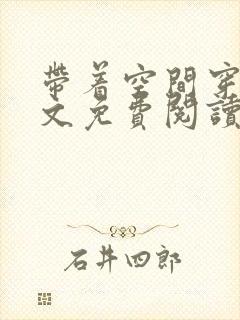 带着空間穿
文免費閱讀
石井四郎